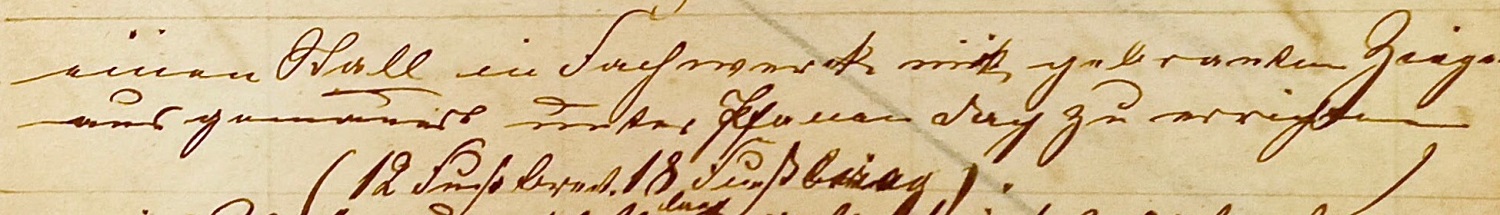 einen Stall in Fachwerk mit gebranten Ziege
ausgemauert unter Pfanen Dach zu errichten
(12 Fuß breit. 18 Fuß lang).
lang